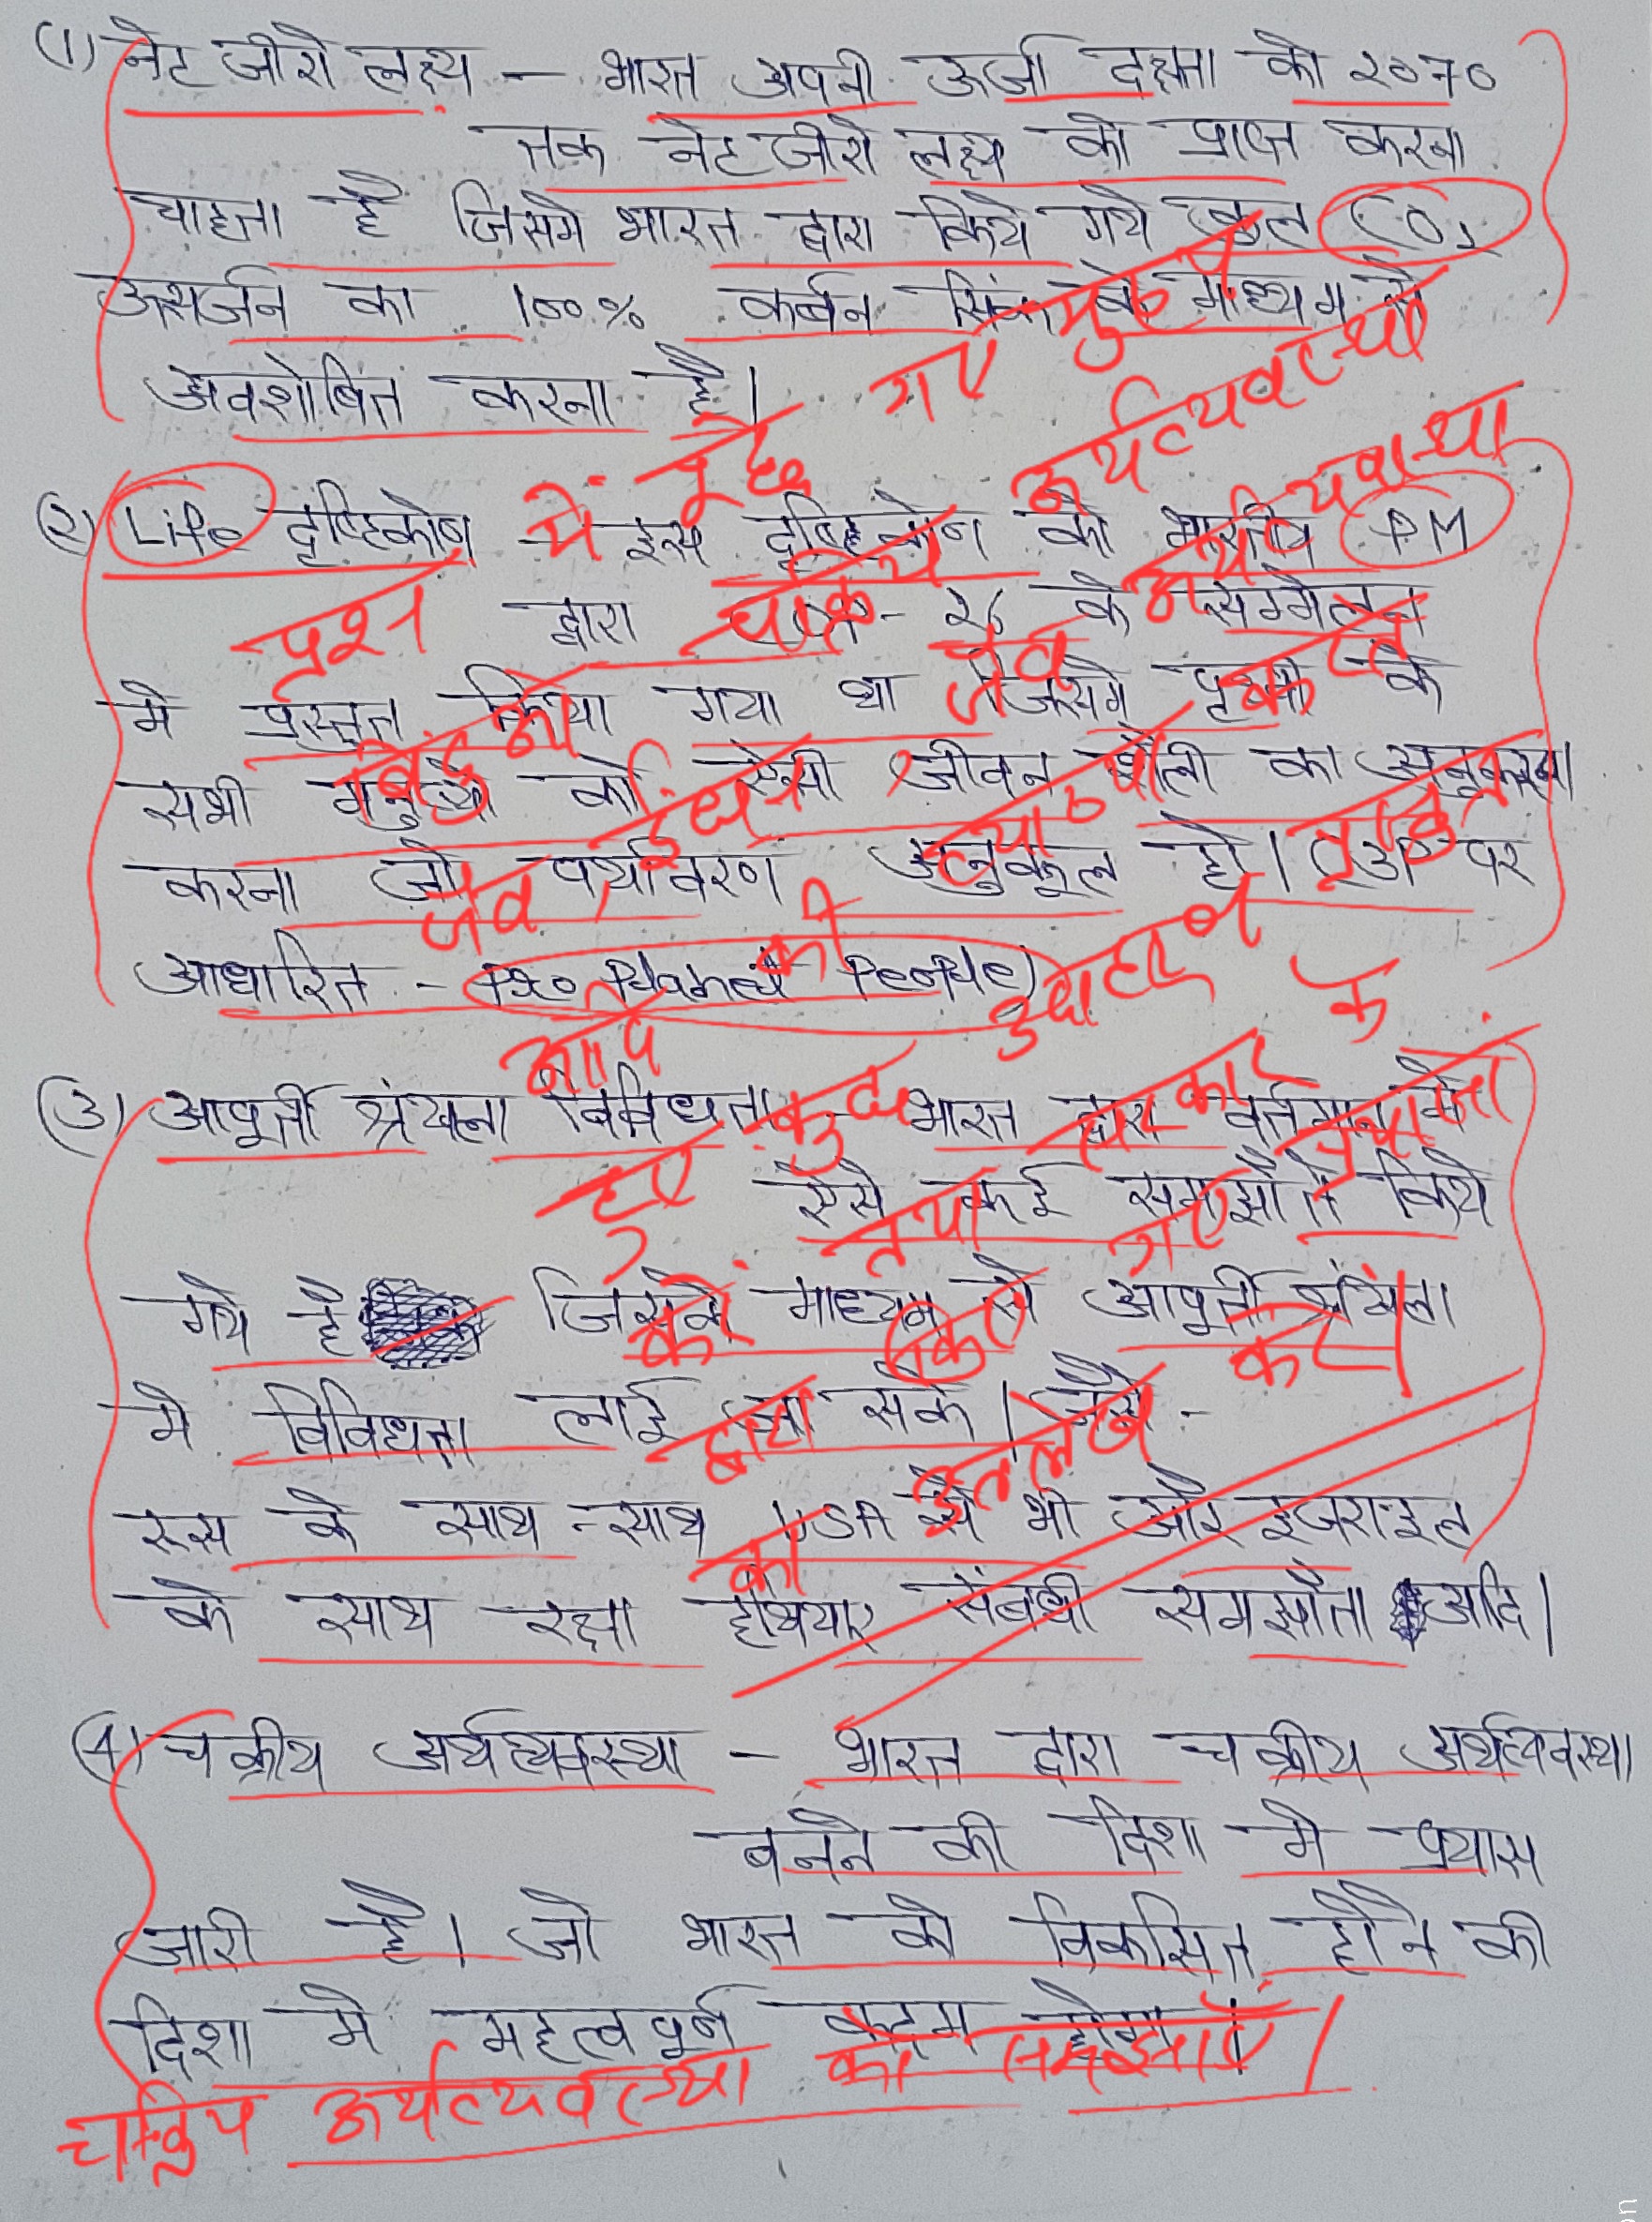 (1) नेट जीरो लक्ष्य – भारत अपनी ऊर्जा दक्षता को 2070
तक नेट जीरो लक्ष्य को प्राप्त करना
चाहता है जिसमे भारत द्वारा किये गये कुल CO2
उत्सर्जन का 100% कर्बन सिंक के माध्यम से
अवशोषित करना है।
(2) Life दृष्टिकोण – इस दृष्टिकोण को भारतीय PM
द्वारा COP-26 के सम्मेलन
मे प्रस्तुत किया गया था जिसमे पृथ्वी के
सभी मनुष्यो को ऐसी जीवन शैली का अनुकरण
करना जो पर्यावरण अनुकूल हो। (3P पर
आधारित - Pro Planet People)
(3) आपूर्ती श्रंखला विविधता - भारत द्वारा वर्तमान मे
ऐसे कई समझौते किये
गये है जिसके माध्यम से आपूर्ती श्रंखला
मे विविधता लाई जा सके। जैसे -
रूस के साथ-साथ USA से भी और इजराइल
के साथ रक्षा हथियार संबधी समझौता आदि।
(4) चक्रीय अर्थव्यवस्था – भारत द्वारा चक्रीय अर्थव्यवस्था
बनने की दिशा मे प्रयास
जारी है। जो भारत को विकसित होने की
दिशा मे महत्वपूर्ण कदम होगा।
प्रश्न में पूछे गए मुख्य
बिंदुओं चक्रीय अर्थव्यवस्था
जैव अर्थव्यवस्था
को उदाहरण
हुए कुछ
तथा सरकार के
द्वारा किए गए प्रयासों
का उल्लेख करें।
चक्रिय अर्थव्यवस्था को समझाएं।